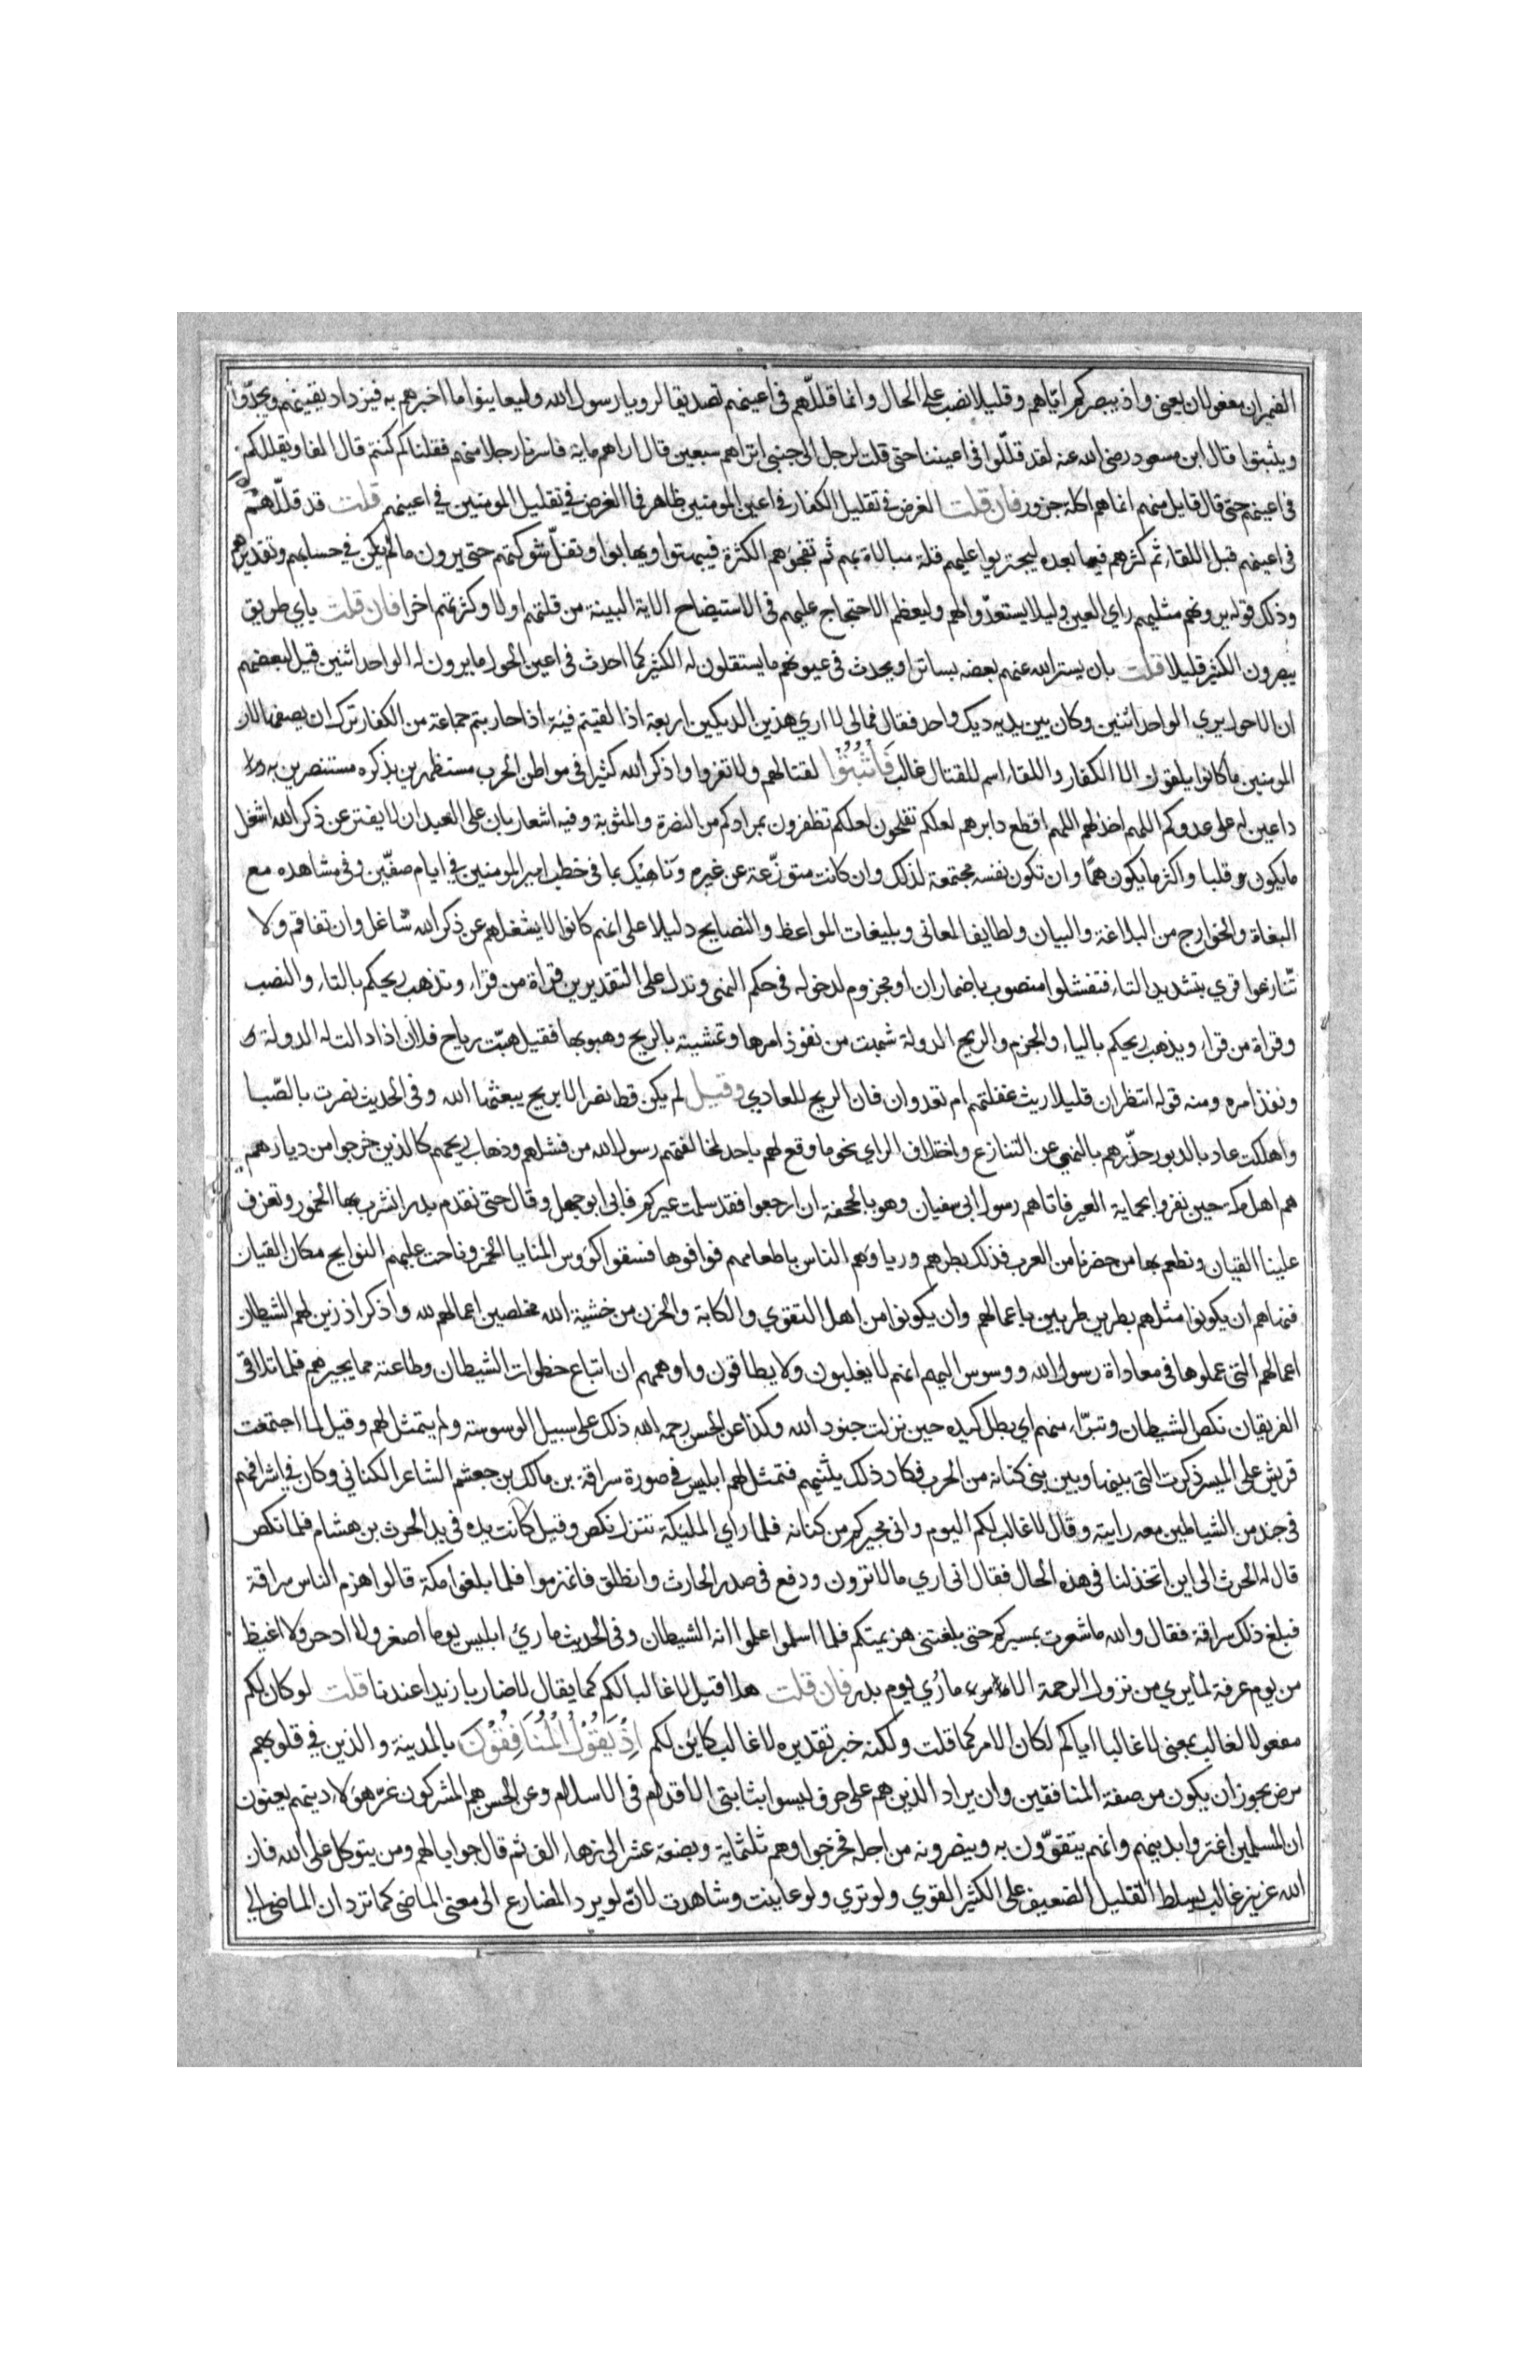 الضميران مفعولان يعني واذ يبصركم اياهم وقليلا نصب على الحال وانما قللّهم في أعينهم تصديقا لرويا رسول الله وليعاينوا ما اخبرهم به فيزداد يقينهم ويجدّوا
ويثبتوا قال ابن مسعود رضي الله عنه لقد قللّوا في اعيننا حتى قلت لرجل الى جنبي اتراهم سبعين قال اراهم ماية فاسرنا رجلا منهم فقلنا كم كنتم قال الفا ويقللكم
في اعينهم حتى قال قايل منهم انما هم اكلة جزور فان قلت الغرض في تقليل الكفار في اعين المومنين ظاهر فما الغرض في تقليل المومنين في اعينهم قلت قد قللّهم
في اعينهم قبل اللقاء ثم كثرهم فيما بعده ليجترئوا عليهم قلة مبالاة بهم ثم تفجؤهم الكثرة فيبهتوا ويهابوا وتفلّ شوكتهم حتى يرون مالم يكن في حسابهم وتقديرهم
وذلك قوله يرونهم مثليهم راي العين وليلا يستعدّوا لهم وليعظم الاحتجاج عليهم في الاستيضاح الاية البينة من قلتهم اولا وكثرتهم اخرا فان قلت باي طريق
يبصرون الكثير قليلا قلت بان يستر الله عنهم بعضه بساتر او يحدث في عيونهم ما يستقلون له الكثير كما احدث في اعين الحول ما يرون له الواحد اثنين قيل لبعضهم
ان الاحول يري الواحد اثنين وكان بين يديه ديك واحد فقال فمالى لا اري هذين الديكين اربعة اذا لقيتم فئة اذا حاربتم جماعة من الكفار ترك ان يصفها لان
المومنين ما كانوا يلقون الا الكفار واللقاء اسم للقتال غالب فَاثْبُتُوْا لقتالهم ولا تفروا واذكر الله كثيرا في مواطن الحرب مستظهرين بذكره مستنصرين به
داعين له على عدوكم اللهم اخذلهم اللهم اقطع دابرهم لعلكم تفلحون لعلكم تظفرون بمرادكم من النصرة والمثوبة وفيه اشعار بان على العبد ان لا يفتر عن ذكر الله اشغل
ما يكون قلبا واكثر ما يكون همّا وان تكون نفسه مجتمعة لذلك وان كانت متوزّعة عن غيره وناهيك بما في خطب امير المومنين في ايام صفّين وفي مشاهده مع
البغاة والخوارج من البلاغة والبيان ولطايف المعاني وبليغات المواعظ والنصايح دليلا على انهم كانوا لا يشغلهم عن ذكر الله شاغل وان تفاقم ولا
تّنازعوا قري بتشديد التاء فتفشلوا منصوب باضمار ان او مجزوم لدخوله في حكم النهي وتدل على التقديرين قراة من قراء وتذهب ريحكم بالتاء والنصب
وقراة من قراء ويذهب ريحكم بالياء والجزم والريح الدولة شبهت من نفوذ امرها وتمشيته بالريح وهبوبها فقيل هبّت رياح فلان اذا دالت له الدولة
ونفذ امره ومنه قوله اتنظران قليلا ريث غفلتهم ام تعدوان فان الريح للعادي وقيل لم يكن قط نصر الا بريح يبعثها الله وفي الحديث نصرت بالصّبا
واهلكت عاد بالدبور حذّرهم بالنهي عن التنازع واختلاف الراي نحو ما وقع لهم باحد لمخالفتهم رسول الله من فشلهم وذهاب ريحهم كالذين خرجوا من ديارهم
هم اهل مكة حين نفروا بحماية العير فاتاهم رسول ابي سفيان وهو بالجحفة ان ارجعوا فقد سلمت عيركم فابى ابو جهل وقال حتى نقدم بدرا نشرب بها الخمور وتعزف
علينا القيان ونطعم بها من حضرنا من العرب فذلك بطرهم ورياوهم الناس باطعامهم فوافوها فسقوا كؤوس المنايا الخمر وناحت عليهم النوايح مكان القيان
فنهاهم ان يكونوا مثلهم بطرين طربين باعمالهم وان يكونوا من اهل التقوي والكابة والحزن من خشية الله مخلصين اعمالهم لله واذكر اذ زين لهم الشيطان
اعمالهم التي عملوها في معاداة رسول الله ووسوس اليهم انهم لا يغلبون ولا يطاقون واوهمهم ان اتباع خطوات الشيطان وطاعته مما يجيرهم فلما تلاقى
الفريقان نكص الشيطان وتبرّاء منهم اي بطل كيده حين نزلت جنود الله وكذا عن الحسن رحمه الله ذلك على سبيل الوسوسة ولم يتمثل لهم وقيل لما اجتمعت
قريش على المسير ذكرت التي بينها وبين بني كنانة من الحرب فكاد ذلك يثنيهم فتمثل لهم ابليس في صورة سراقة بن مالك بن جعشم الشاعر الكناني وكان في اشرافهم
في جند من الشياطين معه راية وقال لا غالب لكم اليوم واني مجيركم من كنانة فلما راي المليكة تتنزل نكص وقيل كانت يده في يد الحرث بن هشام فلما نكص
قال له الحرث الى اين اتخذلنا في هذه الحال فقال انى اري ما لا ترون ودفع في صدر الحارث وانطلق فانهزموا فلما بلغوا مكة قالوا هزم الناس سراقة
فبلغ ذلك سراقة فقال والله ما شعرت بمسيركم حتى بلغتني هزيمتكم فلما اسلموا علموا انه الشيطان وفي الحديث ما رئ ابليس يوما اصغر ولا ادحر ولا اغيظ
من يوم عرفة لما يري من نزول الرحمة الا ما رُي يوم بدر فان قلت هلا قيل لا غالبا لكم كما يقال لا ضاربا زيدا عندنا قلت لو كان لكم
مفعولا لغالب بمعنى لا غالبا اياكم لكان الامر كما قلت ولكنه خبر تقديره لا غالب كاين لكم اِذْ يَقُوْلُ الْمُنَافِقُوْنَ بالمدينة والذين في قلوبهم
مرض يجوز ان يكون من صفة المنافقين وان يراد الذين هم على حرف ليسوا بثابتي الاقدام في الاسلام وعن الحسن هم المشركون غرّ هؤلاء دينهم يعنون
ان المسلمين اغتروا بدينهم وانهم يتقوّون به وينصرونه من اجله فخرجوا وهم ثلثماية وبضعة عشر الى زهاء الف ثم قال جوابا لهم ومن يتوكل على الله فان
الله عزيز غالب يسلط القليل الضعيف على الكثير القوي ولو تري ولو عاينت وشاهدت لانّ لو يرد المضارع الى معنى الماضي كما ترد ان الماضي الى